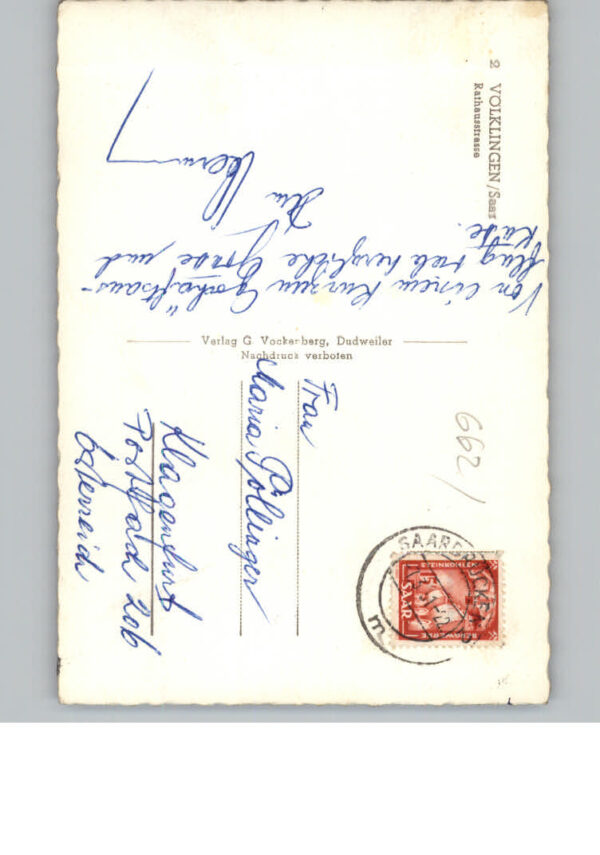 52 VÖLKLINGEN/Saar
Rathausstrasse
Von einem kurzen Geschäftsaus-
flug viele herzliche Grüße und
Küsse.
Dein
Verlag G. Vockenberg, Dudweiler
Nachdruck verboten
Frau
Maria Pöllinger
Klagenfurt
Postfach 206
Österreich
662/
SAARBRÜCKEN
SAAR
15